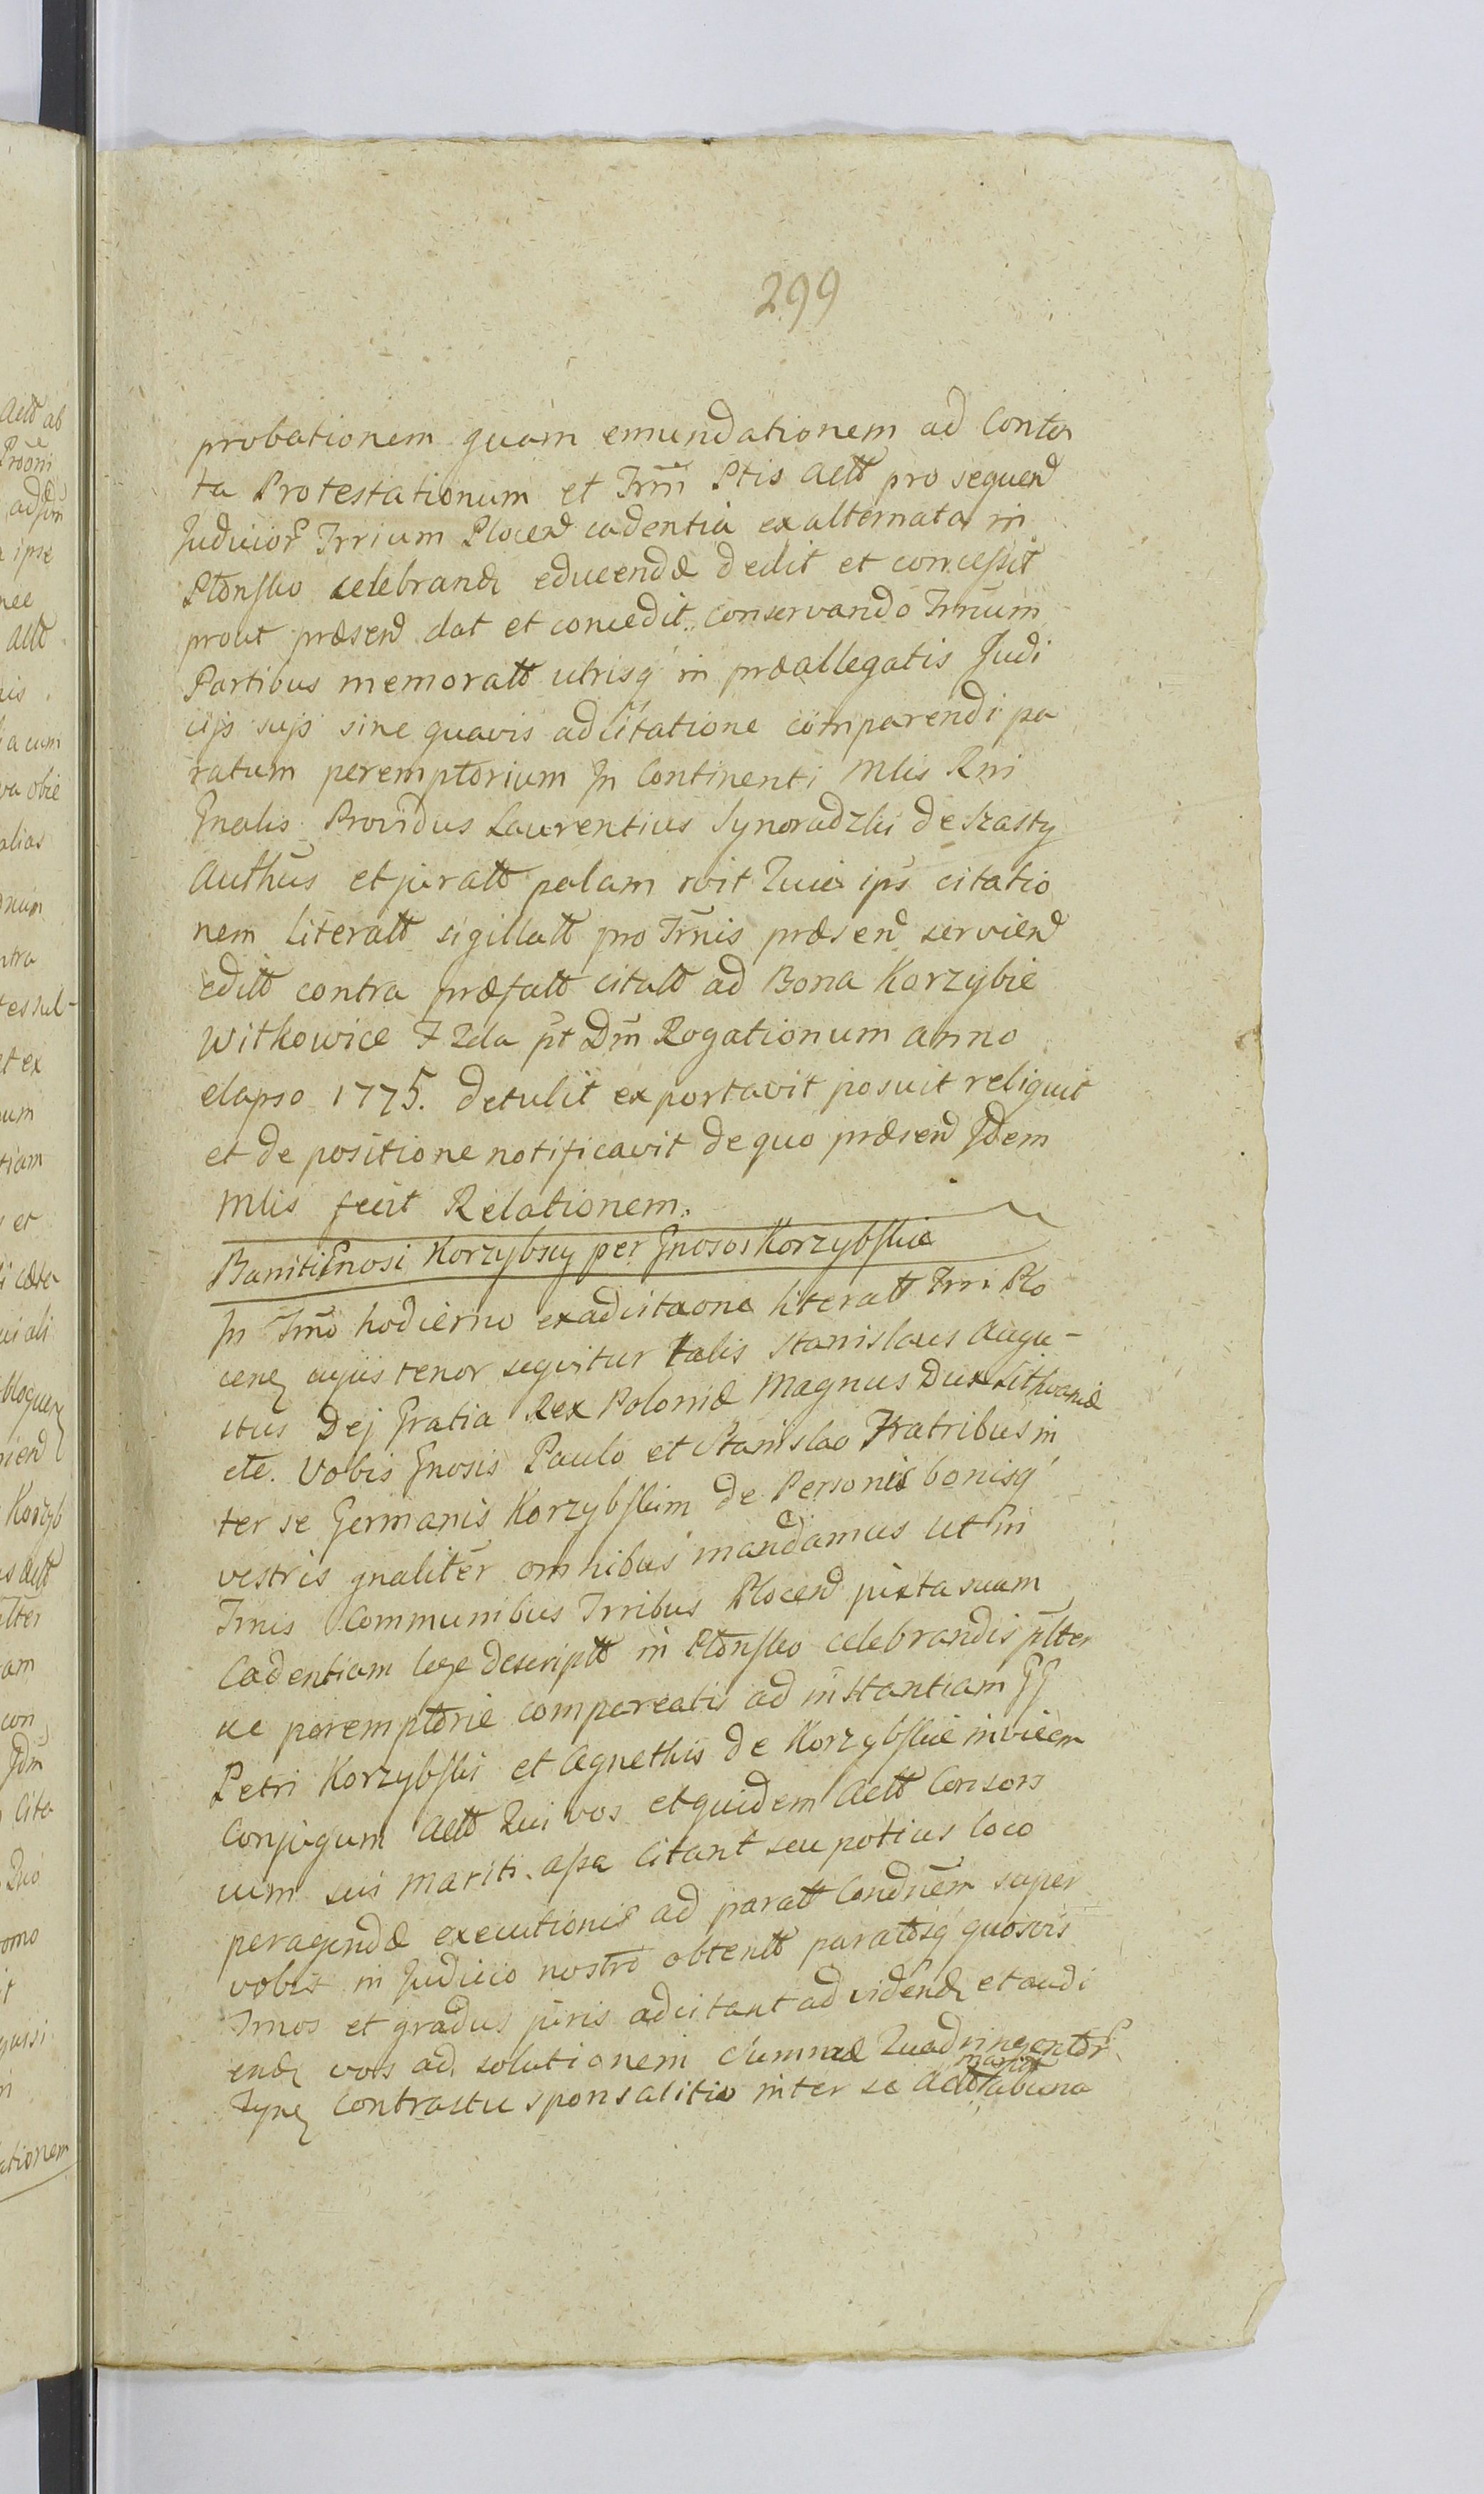 299
probationem quam emendationem ad Conten
ta Protestationum et Trm̄ Ptis Actt pro sequend
Judicior Trrium Plocen cadentia ex alternata in
Płońsko celebrand educendæ dedit et concessit
prout præsen dat et concedit. Conservando Trnum
Partibus memoratt utrisq in præallegatis Judi
cijs sujs sine quavis adcitatione comparendi pa
ratum peremptorium In Continenti Mlis Rni
Gnalis Providus Laurentius Synoradzki de Szasty
Authūs et juratt palam rcit Quia ips citatio
nem literatt sigillatt pro Trnis præsen servien
editt contra præfatt citatt ad Bona Korzybie
Witkowice F 2da pt Dm̄ Rogationum anno
elapso 1775. detulit exportavit posuit reliquit
et de positione notificavit de quo præsen Idem
Mlis fecit Relationem.
Baniti Gnosi Korzybscy per Gnosos Korzybskie
In Trno hodierno ex adcitaone literatt Trri Plo
cen cujus tenor sequitur talis Stanislaus Augu-
stus Dej Gratia Rex Poloniæ Magnus Dux Lithvaniæ
etc. Vobis Gnosis Paulo et Stanislao Fratribus in
ter se Germanis Korzybskim de Personis bonisq
vestris gnaliter omnibus mandamus ut in
Trnis Communibus Trribus Plocen juxta suam
Cadentiam lege descriptt in Płońsko celebrandis plter
ac peremptorie compareatis ad instantiam GG
Petri Korzybski et Agnethis de Korzybskie invicem
Conjugum Actt Qui vos et quidem Actt Consors
cum sui mariti assa citant seu potius loco
peragendæ executionis ad paratt Condnem super
vobis in Judicio nostro obtentt paratosq quosvis
Trnos et gradus juris adcitant ad videnđ et audi
enđ vos ad solutionem Summæ Quadringentor
Contractu sponsalitio inter se Actt